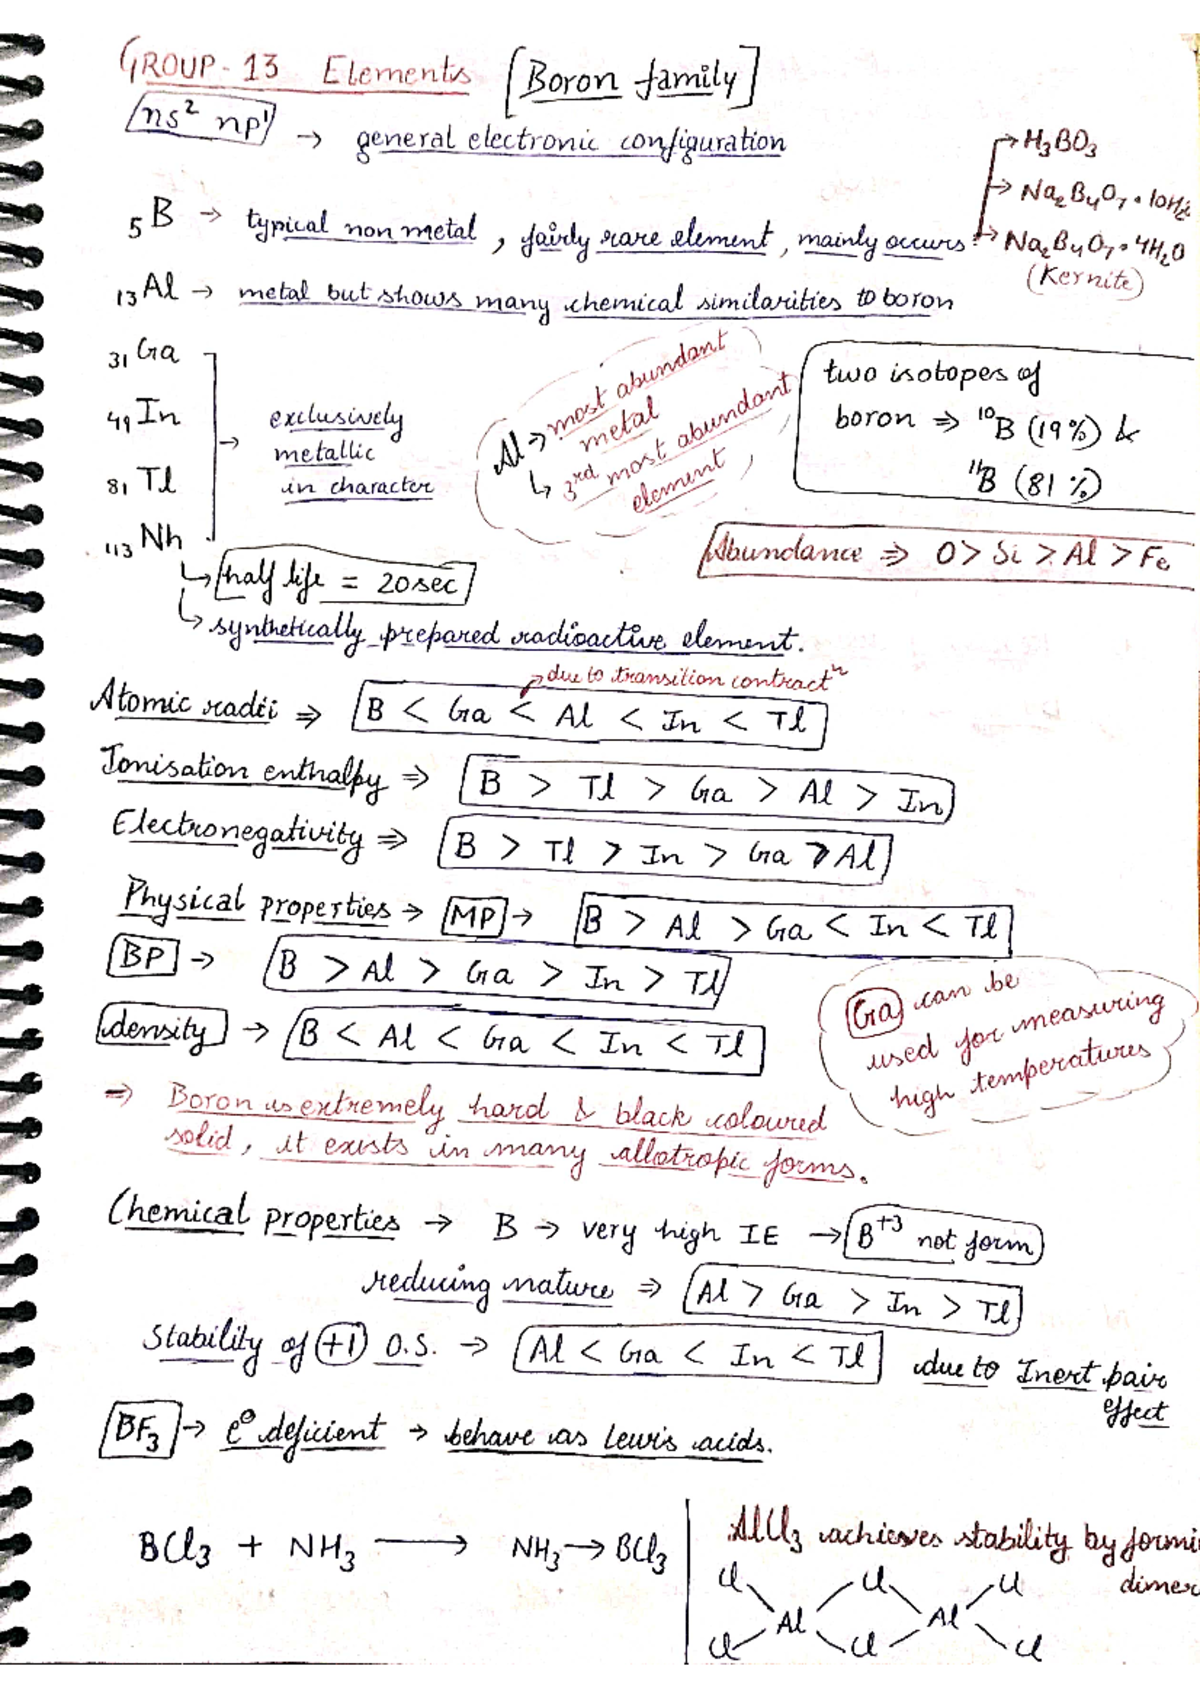 GROUP-13 Elements [Boron family]
ns² np¹ → general electronic configuration
→ H₃BO₃
→ Na₂B₄O₇·10H₂
₅B → typical non metal, fairly rare element, mainly occurs → Na₂B₄O₇·4H₂O
(Kernite)
₁₃Al → metal but shows many chemical similarities to boron
₃₁Ga
₄₉In
₈₁Tl
₁₁₃Nh
→ exclusively
metallic
in character
Al → most abundant
metal
↳ 3rd most abundant
element
two isotopes of
boron ⇒ ¹⁰B (19%) &
¹¹B (81%)
Abundance ⇒ O > Si > Al > Fe
↳ half life = 20sec
↳ synthetically prepared radioactive element.
→ due to transition contractⁿ
Atomic radii ⇒ B < Ga < Al < In < Tl
Ionisation enthalpy ⇒ B > Tl > Ga > Al > In
Electronegativity ⇒ B > Tl > In > Ga > Al
Physical properties → MP → B > Al > Ga < In < Tl
BP → B > Al > Ga > In > Tl
density → B < Al < Ga < In < Tl
Ga can be
used for measuring
high temperatures
⇒ Boron is extremely hard & black coloured
solid, it exists in many allotropic forms.
Chemical properties → B → very high IE → B⁺³ not form
reducing nature ⇒ Al > Ga > In > Tl
Stability of +1 O.S. → Al < Ga < In < Tl due to Inert pair
effect
BF₃ → e⊖ deficient → behave as Lewis acids.
BCl₃ + NH₃ ⟶ NH₃→BCl₃
AlCl₃ achieves stability by formi
dimer
Cl Cl Cl
Al Al
Cl Cl Cl